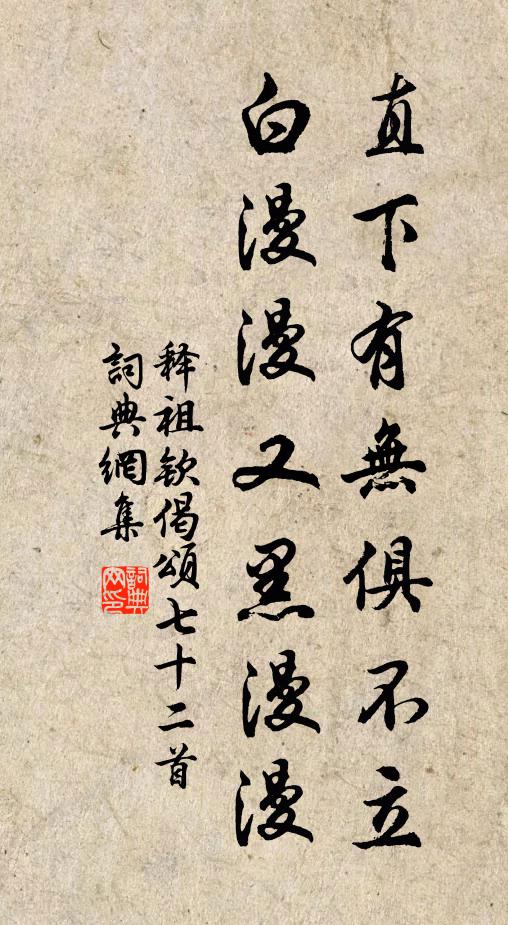 直下有無俱不立
白漫漫又黑漫漫
释祖欽偈頌七十二首
詞典網集
詞典網印